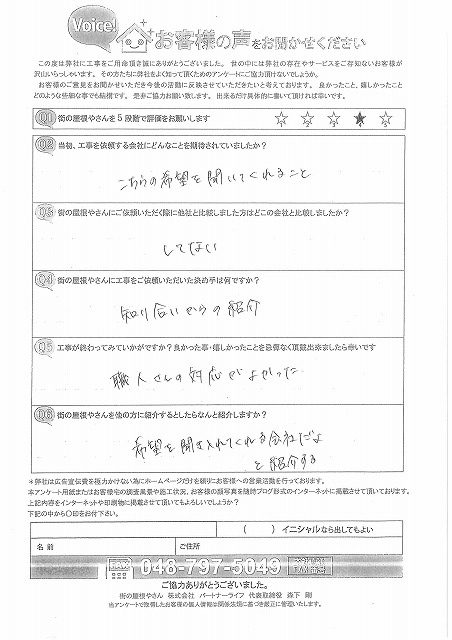 Voice!
お客様の声をお聞かせください
この度は弊社に工事をご用命頂き誠にありがとうございました。 世の中には弊社の存在やサービスをご存知ないお客様が
沢山いらっしゃいます。 その方たちに弊社をよく知って頂くためのアンケートにご協力頂けないでしょうか。
お客様のご意見をお聞かせいただき今後の活動に反映させていただきたいと考えております。 良かったこと、嬉しかったこと
どのような些細な事でも結構です。 是非ご協力お願い致します。 出来るだけ具体的に書いて頂ければ幸いです。
Q1 街の屋根やさんを5段階で評価をお願いします
1 2 3 4 5
Q2 当初、工事を依頼する会社にどんなことを期待されていましたか?
こちらの希望を聞いてくれること
Q3 街の屋根やさんにご依頼いただく際に他社と比較しました方はどこの会社と比較しましたか?
してない
Q4 街の屋根やさんに工事をご依頼いただいた決め手は何ですか?
知り合いからの紹介
Q5 工事が終わってみていかがですか?良かった事・嬉しかったことを忌憚なく頂戴出来ましたら幸いです
職人さんの対応がよかった
Q6 街の屋根やさんを他の方に紹介するとしたらなんと紹介しますか?
希望を聞き入れてくれる会社だよ
と紹介する
*弊社は広告宣伝費を極力かけない為にホームページだけを頼りにお客様への営業活動を行っております。
本アンケート用紙またはお客様宅の調査風景や施工状況、お客様の顔写真を随時ブログ形式のインターネットに掲載させて頂いております。
上記内容をインターネットや印刷物に掲載させて頂いてもよろしいでしょうか?
下記の中から〇印をお付下さい。
( ) イニシャルなら出してもよい
名前
ご住所
048-797-5043
ご協力ありがとうございました。
街の屋根やさん 株式会社 パートナーライフ 代表取締役 森下 剛
当アンケートで取得したお客様の個人情報は関係法規に基づき厳正に管理いたします。